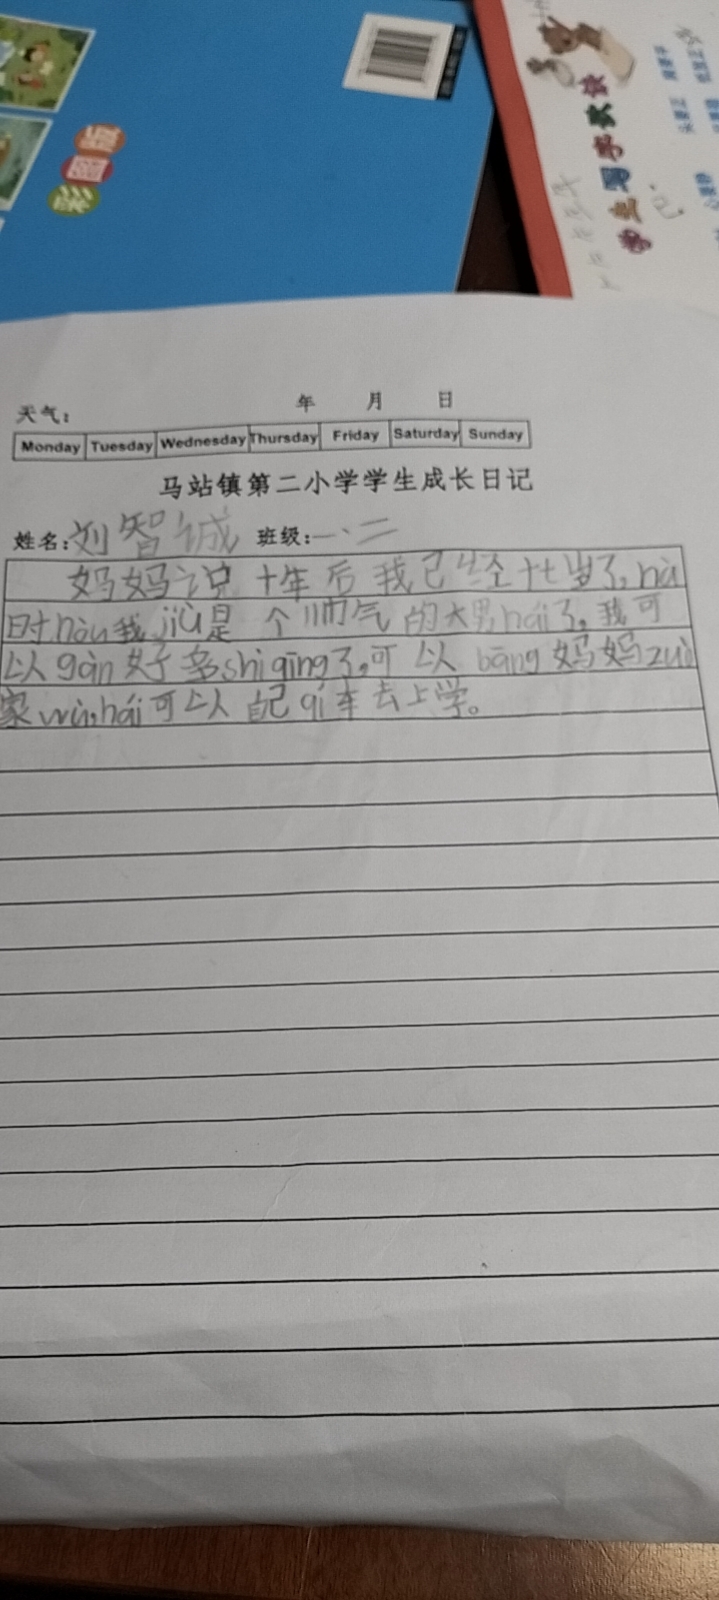 彩图版
学生写字教铁
天气： 年 月 日
Monday Tuesday Wednesday Thursday Friday Saturday Sunday
马站镇第二小学学生成长日记
姓名：刘智诚 班级：一、二
妈妈说十年后我已经十七岁了，nà
时hòu我jiù是个帅气的大男hái了，我可
以gàn好多shì qing了，可以bāng妈妈zuò
家wù，hái可以自己qí车去上学。